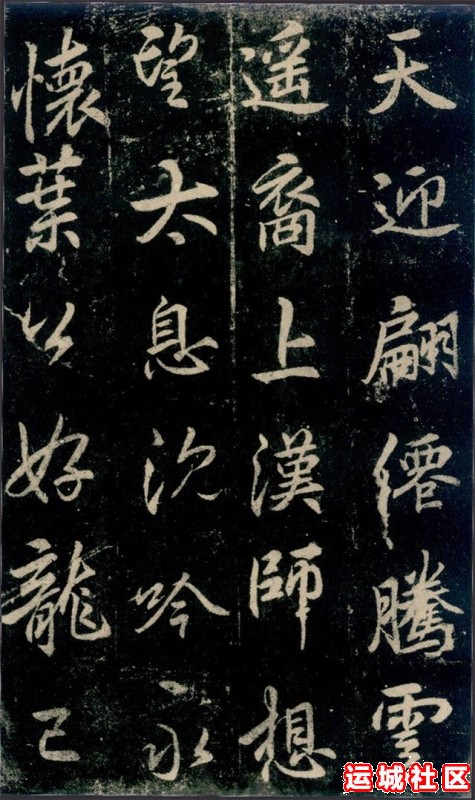 天迎翩僊騰雲
遥裔上漢師想
望太息沉吟永
懷葉公好龍已
运城社区